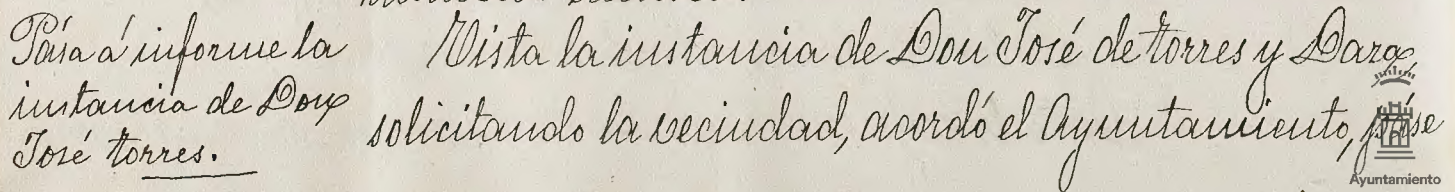 Pasa á informe la
instancia de Don
José torres.
Vista la instancia de Don José de torres y Dara,
solicitando la vecindad, acordó el Ayuntamiento, páse
Ayuntamiento